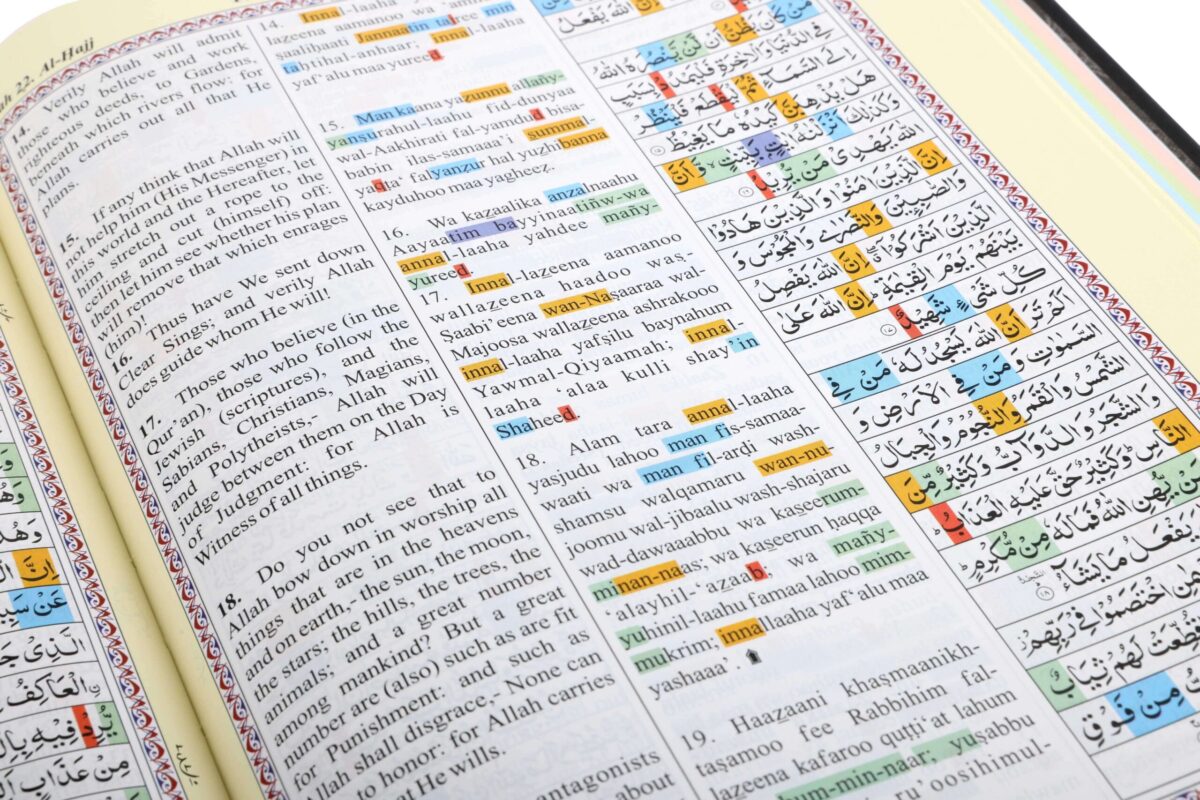 22. Al-Hajj
14. Verily Allah will admit
those who believe and work
righteous deeds, to Gardens,
beneath which rivers flow: for
Allah carries out all that He
plans.
15. If any think that Allah will
not help him (His Messenger) in
this world and the Hereafter, let
him stretch out a rope to the
ceiling and cut (himself) off:
then let him see whether his plan
will remove that which enrages
(him)!
16. Thus have We sent down
Clear Sings; and verily Allah
does guide whom He will!
17. Those who believe (in the
Qur'an), those who follow the
Jewish (scriptures), and the
Sabians, Christians, Magians,
and Polytheists,- Allah will
judge between them on the Day
of Judgment: for Allah is
Witness of all things.
18. Do you not see that to
Allah bow down in worship all
things that are in the heavens
and on earth,- the sun, the moon,
the stars; the hills, the trees, the
animals; and a great number
among mankind? But a great
number are (also) such as are fit
for Punishment: and such as
Allah shall disgrace,- None can
to honor: for Allah carries
that He wills.
antagonists
about
14. Innal-laaha
lazeena aamanoo wa
saaliḥaati Jannaatin tajree min
taḥtihal-anhaar; innal-laaha
yaf'alu maa yureed.
15. Man kaana yazunnu allañy-
yansurahul-laahu fid-dunyaa
wal-Aakhirati fal-yamdud bisa-
babin ilas-samaaa'i summal-
yaqta' falyanzur hal yuzhibanna
kayduhoo maa yagheez.
16. Wa kazaalika anzalnaahu
Aayaatim bayyinaatiñw-wa
annal-laaha yahdee mañy-
yureed.
17. Innal-lazeena aamanoo
wallazeena haadoo waṣ-
Ṣaabi'eena wan-Naṣaaraa wal-
Majoosa wallazeena ashrakooo
innal-laaha yafṣilu baynahum
Yawmal-Qiyaamah; innal-
laaha 'alaa kulli shay'in
Shaheed.
18. Alam tara annal-laaha
yasjudu lahoo man fis-samaa-
waati wa man fil-arḍi wash-
shamsu walqamaru wan-nu-
joomu wal-jibaalu wash-shajaru
wad-dawaaabbu wa kaṡeerum-
minan-naas; wa kaṡeerun ḥaqqa
'alayhil-'azaab; wa mañy-
yuhinil-laahu famaa lahoo mim-
mukrim; innallaaha yaf'alu maa
yashaaa'.
19. Haazaani khaṣmaanikh-
taṣamoo fee Rabbihim fal-
lazeena kafaroo quṭṭi'at lahum
min-naar; yuṣabbu
ru'oosihimul-
اللهَ يَفْعَلُ
مَنْ كَانَ يَظُنُّ أَنْ لَّنْ يَّنْصُرَهُ اللهُ
فِى الدُّنْيَا وَالْاٰخِرَةِ فَلْيَمْدُدْ بِسَبَبٍ
اِلَى السَّمَآءِ ثُمَّ لْيَقْطَعْ فَلْيَنْظُرْ
هَلْ يُذْهِبَنَّ كَيْدُهٗ مَا يَغِيْظُ ۝١٥
وَكَذٰلِكَ اَنْزَلْنٰهُ اٰيٰتٍۭ بَيِّنٰتٍ وَّاَنَّ
اللهَ يَهْدِىْ مَنْ يُّرِيْدُ ۝١٦ اِنَّ
الَّذِيْنَ اٰمَنُوْا وَالَّذِيْنَ هَادُوْا
وَالصّٰبِئِيْنَ وَالنَّصٰرٰى وَالْمَجُوْسَ وَ
الَّذِيْنَ اَشْرَكُوْٓا اِنَّ اللهَ يَفْصِلُ
بَيْنَهُمْ يَوْمَ الْقِيٰمَةِ اِنَّ اللهَ عَلٰى
كُلِّ شَىْءٍ شَهِيْدٌ ۝١٧
اَلَمْ تَرَ اَنَّ اللهَ يَسْجُدُ لَهٗ مَنْ فِى
السَّمٰوٰتِ وَمَنْ فِى الْاَرْضِ وَ
الشَّمْسُ وَالْقَمَرُ وَالنُّجُوْمُ وَالْجِبَالُ
وَالشَّجَرُ وَالدَّوَآبُّ وَكَثِيْرٌ مِّنَ
النَّاسِ وَكَثِيْرٌ حَقَّ عَلَيْهِ الْعَذَابُ
مَنْ يُّهِنِ اللهُ فَمَا لَهٗ مِنْ مُّكْرِمٍ
يَفْعَلُ مَا يَشَآءُ ۝١٨
اخْتَصَمُوْا فِىْ رَبِّهِمْ
قُطِّعَتْ لَهُمْ ثِيَابٌ
مِنْ فَوْقِ
وَهُدُ
اِنَّ
عَنْ سَبِيْ
الَّذِىْ جَ
الْعَاكِفُ
يُّرِدْ فِيْهِ بِالْ
مِنْ عَذَابٍ اَلِ